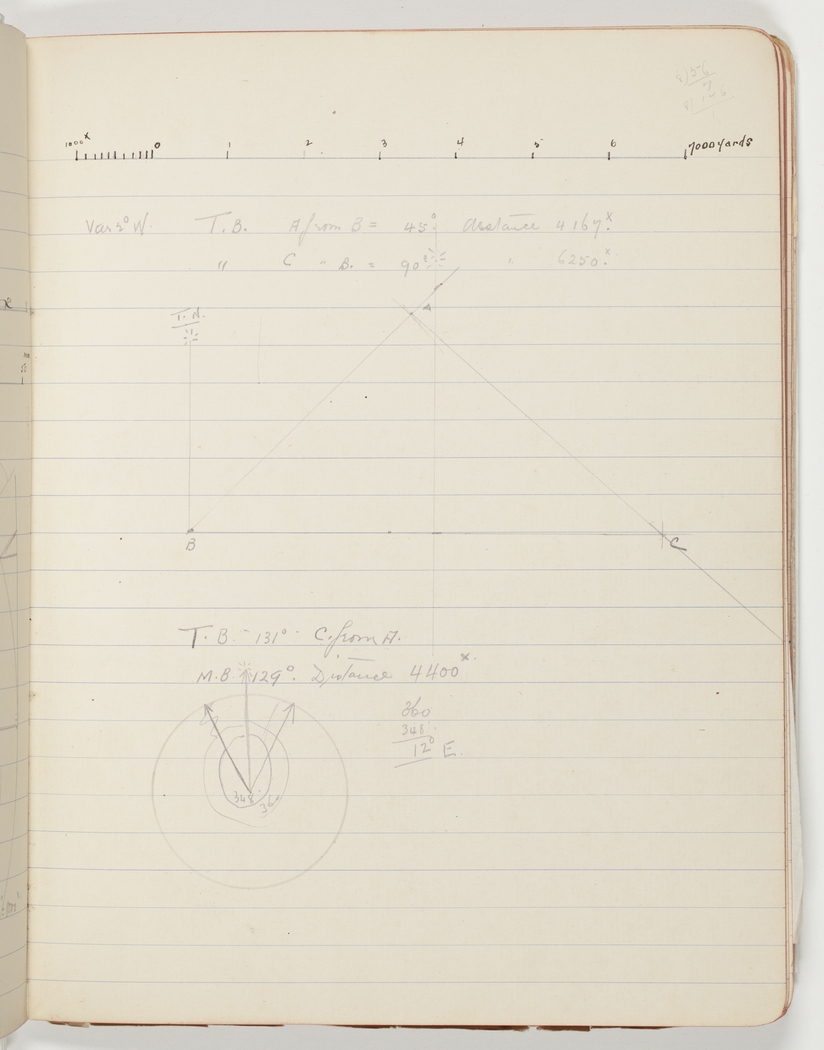 8)56
7
1000ˣ 0 1 2 3 4 5 6 7000 Yards
Var 2° W. T.B. A from B = 45° Distance 4167ˣ
" C " B. = 90° " 6250ˣ
T.N.
A
B
C
T.B. 131° C. from A.
M.B. 129°. Distance 4400ˣ.
360
348
12° E.
348 360